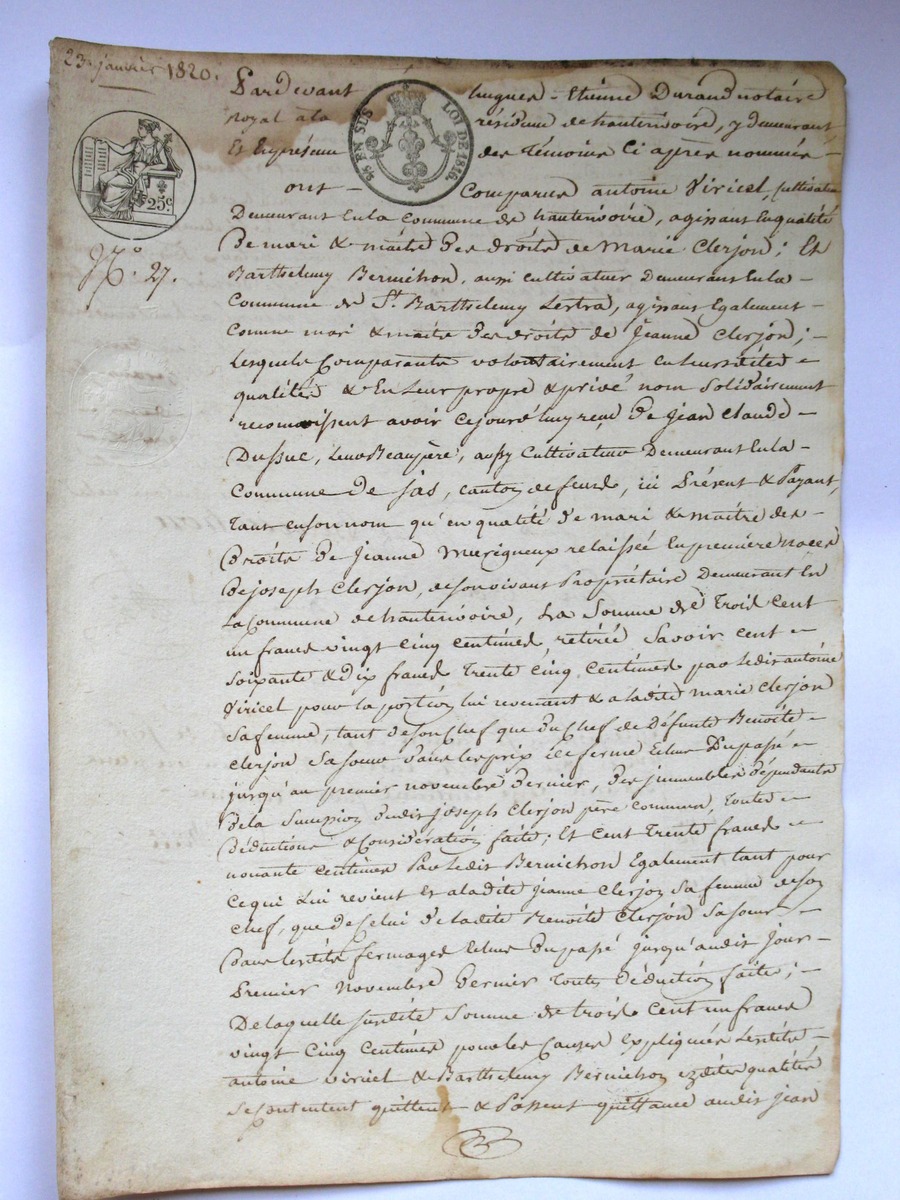 23 janvier 1820.
Pardevant hugues-Etienne Durand notaire
Royal à la résidence de hauterivoire, y demeurant,
Et En présence des Témoins Ci après nommés
¼ EN SUS LOI DE 1816.
25c
ont Comparus antoine Viricel, cultivateur
Demeurant En la Commune de hauterivoire, agissant En qualité
De mari & maitre des droits de Marie Clerjon; Et
N.° 27.
Barthelemy Bernichon, aussi cultivateur Demeurant En la
Commune de St. Barthelemy Lestra, agissant Egalement
Comme mari & maitre des droits de Jeanne Clerjon;
Lesquels Comparants volontairement En leursdites
qualités & En Leur propre & privé nom Solidairement
reconnoissent avoir cejourd'huy reçu De Jean Claude
Dussuc, Leur Beaupère, aussy Cultivateur Demeurant En la
Commune De Jas, canton de feurs, ici Présent & Payant,
Tant en son nom qu'en qualité De mari & maitre des
Droits De Jeanne Murigneux relaissée En première noces
De joseph Clerjon, de son vivant Propriétaire Demeurant En
La Commune de hauterivoire, La Somme de Trois Cent
un francs vingt Cinq Centimes, retirée Savoir Cent
Soixante & Dix francs Trente Cinq Centimes par Ledit antoine
Viricel pour la portion lui revenant & a ladite marie Clerjon
Sa femme, tant de Son Chef que du Chef de défunte Benoite
Clerjon Sa Soeur Dans les prix de ferme Echus Du passé
jusqu'au premier novembre Dernier, des immeubles dépendants
De la Succession dudit joseph Clerjon père commun, toutes
Déductions & Considération faite; Et Cent Trente francs
nonante Centimes Par Ledit Bernichon Egalement tant pour
Ce qui Lui revient Et a ladite Jeanne Clerjon Sa femme de Son
Chef, que de Celui de ladite Benoite Clerjon Sa Soeur
Dans lesdits fermages Echus Du passé jusqu'audit jour
Premier Novembre Dernier Toutes Déduction faite;
De laquelle Susdite Somme de trois Cent un francs
vingt Cinq Centimes pour les Causes Expliquées Lesdits
antoine Viricel & Barthelemy Bernichon Esdites qualités
Se Contentent quittent & Passent quittance audit Jean